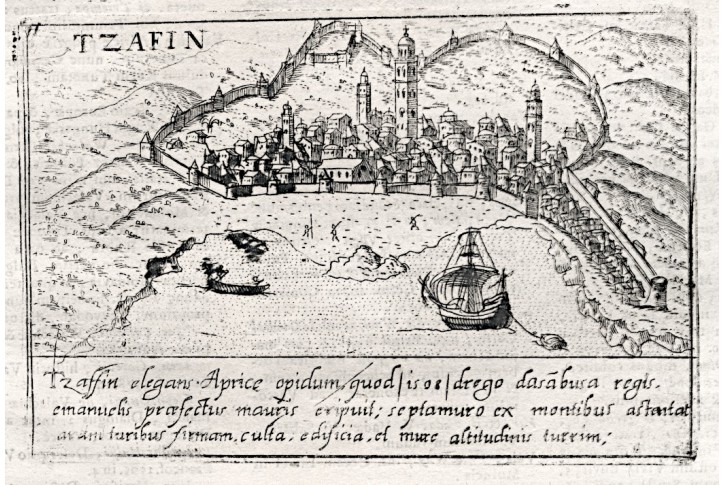 TZAFIN
Tzaffin elegans Aprice opidum quod | 1508 | drego dasābusa regis.
emanuelis præfectus mauris eripuit; septamuro ex montibus
turibus firmam, culta, edificia, et mire altitudinis turrim;